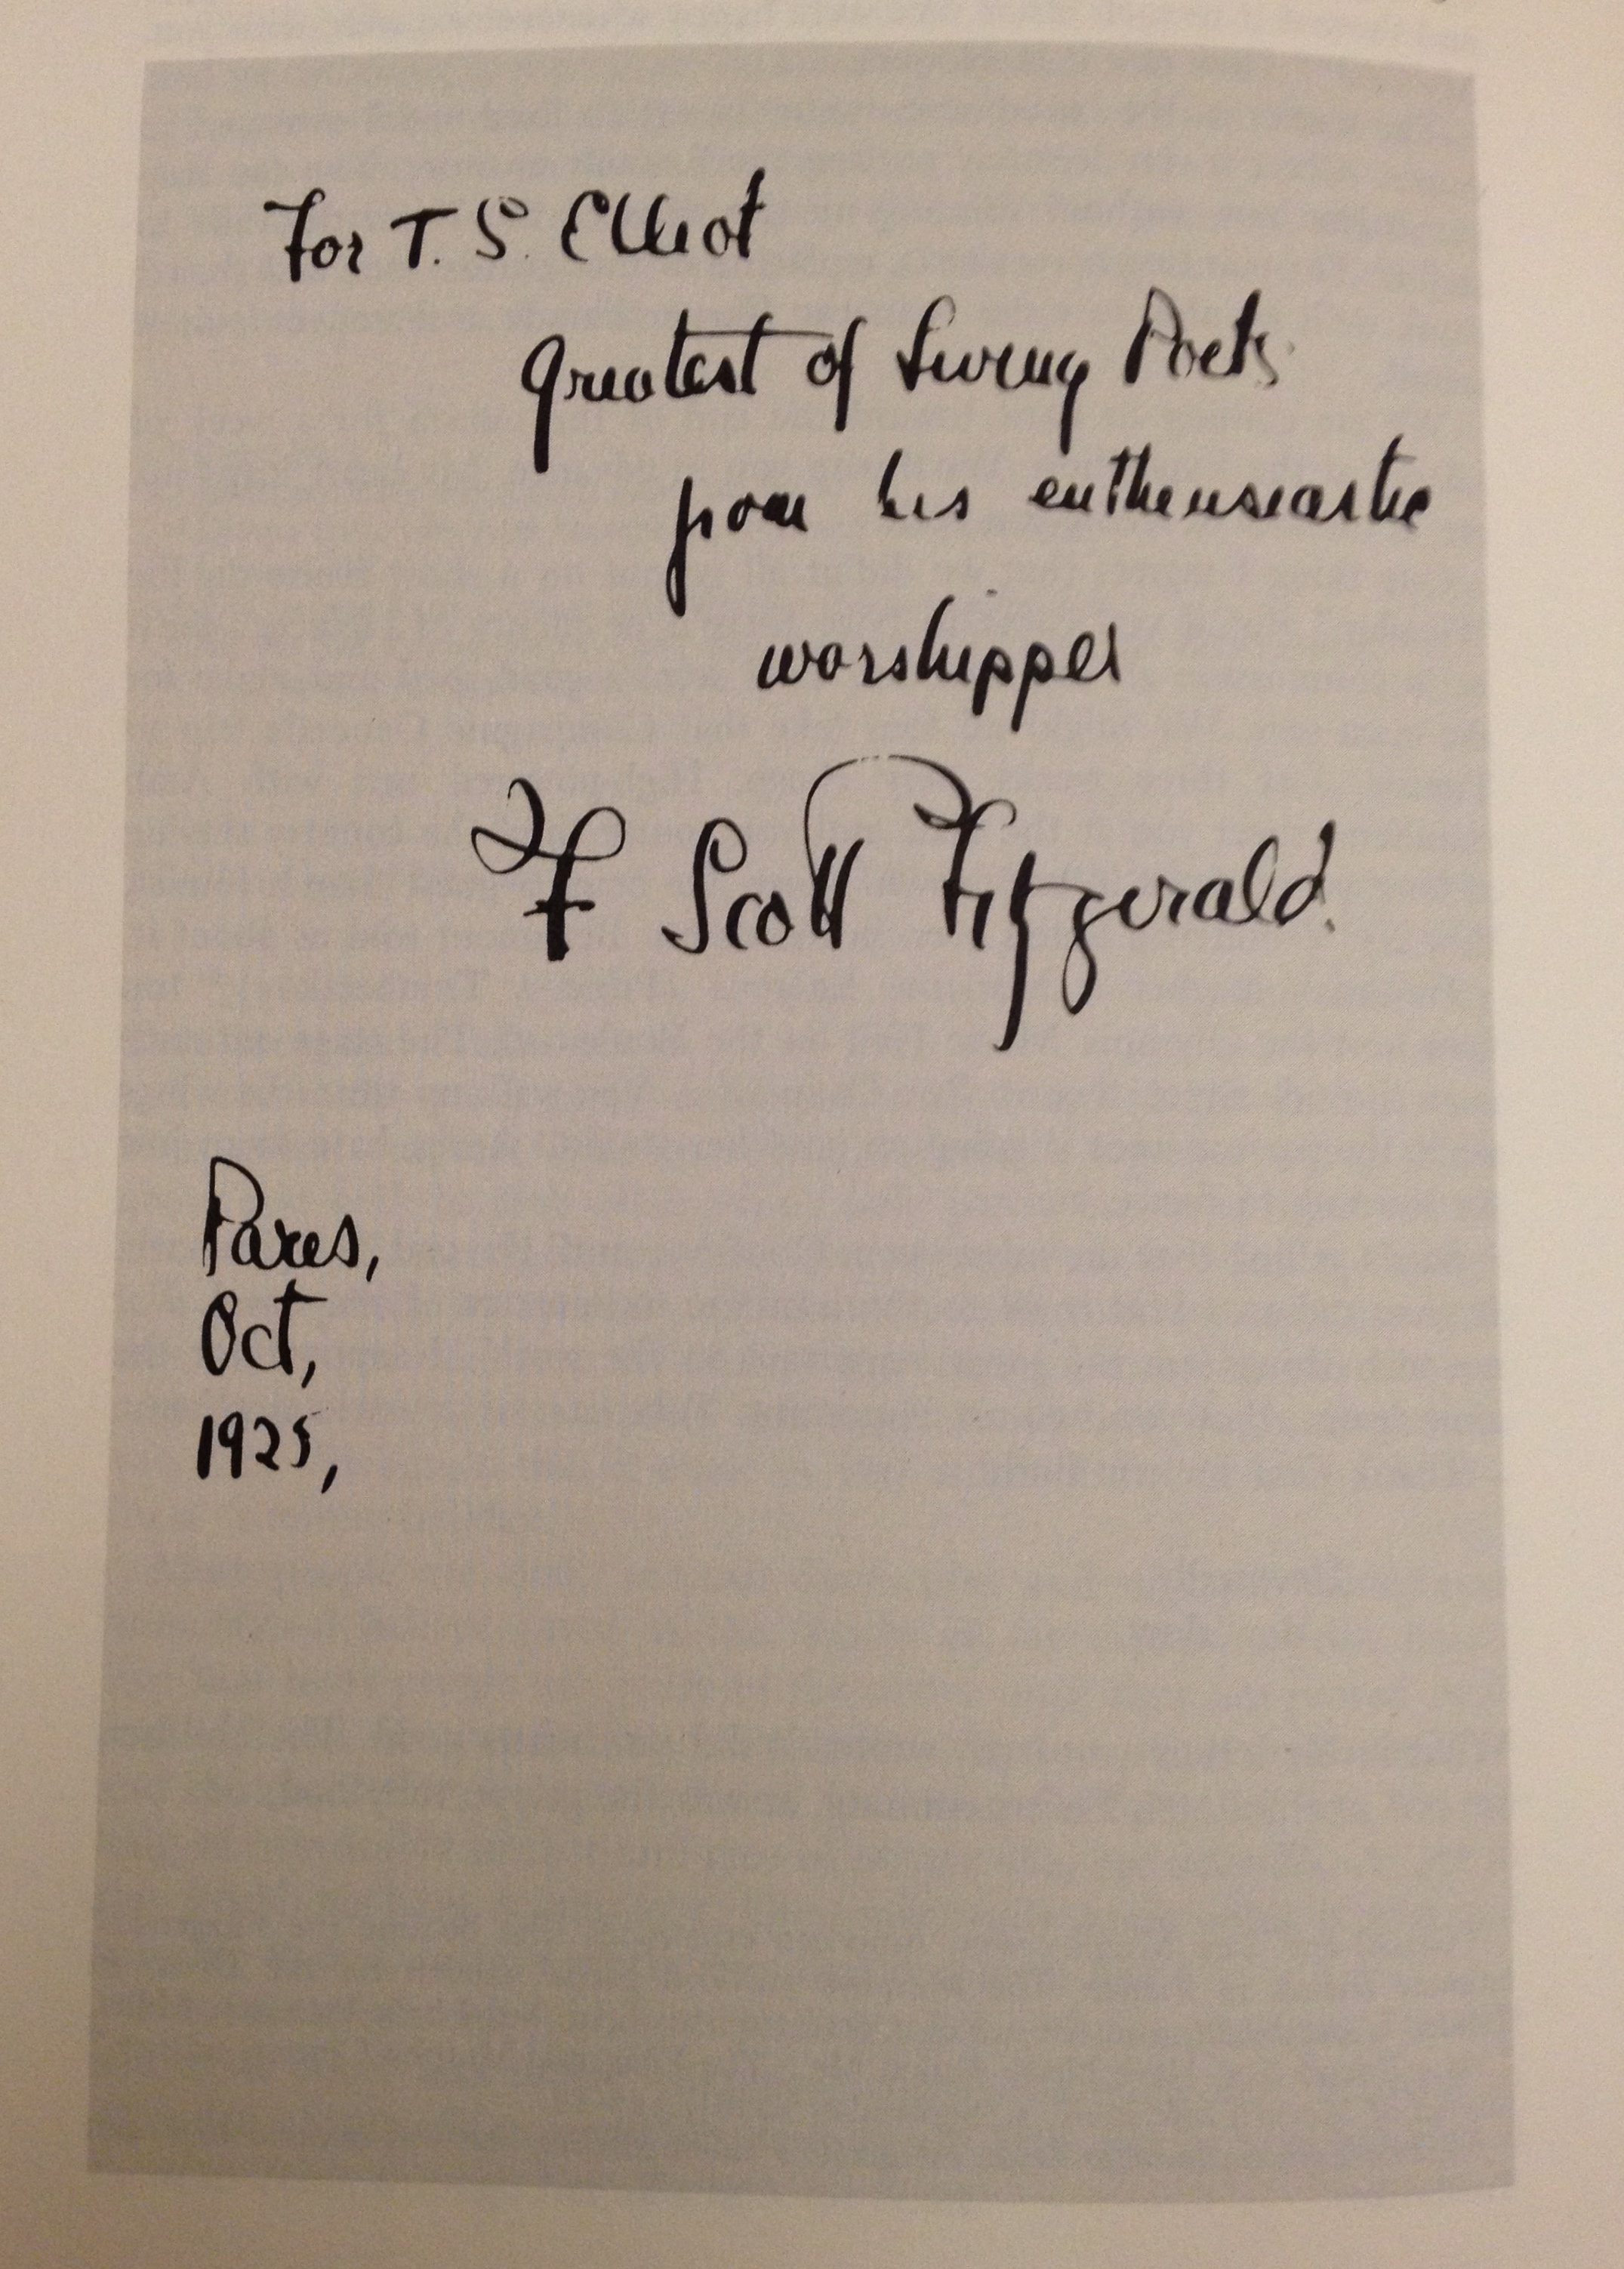 For T. S. Elliot
Greatest of Living Poets
from his entheusiastic
worshipper
F Scott Fitzgerald.
Paris,
Oct,
1925,